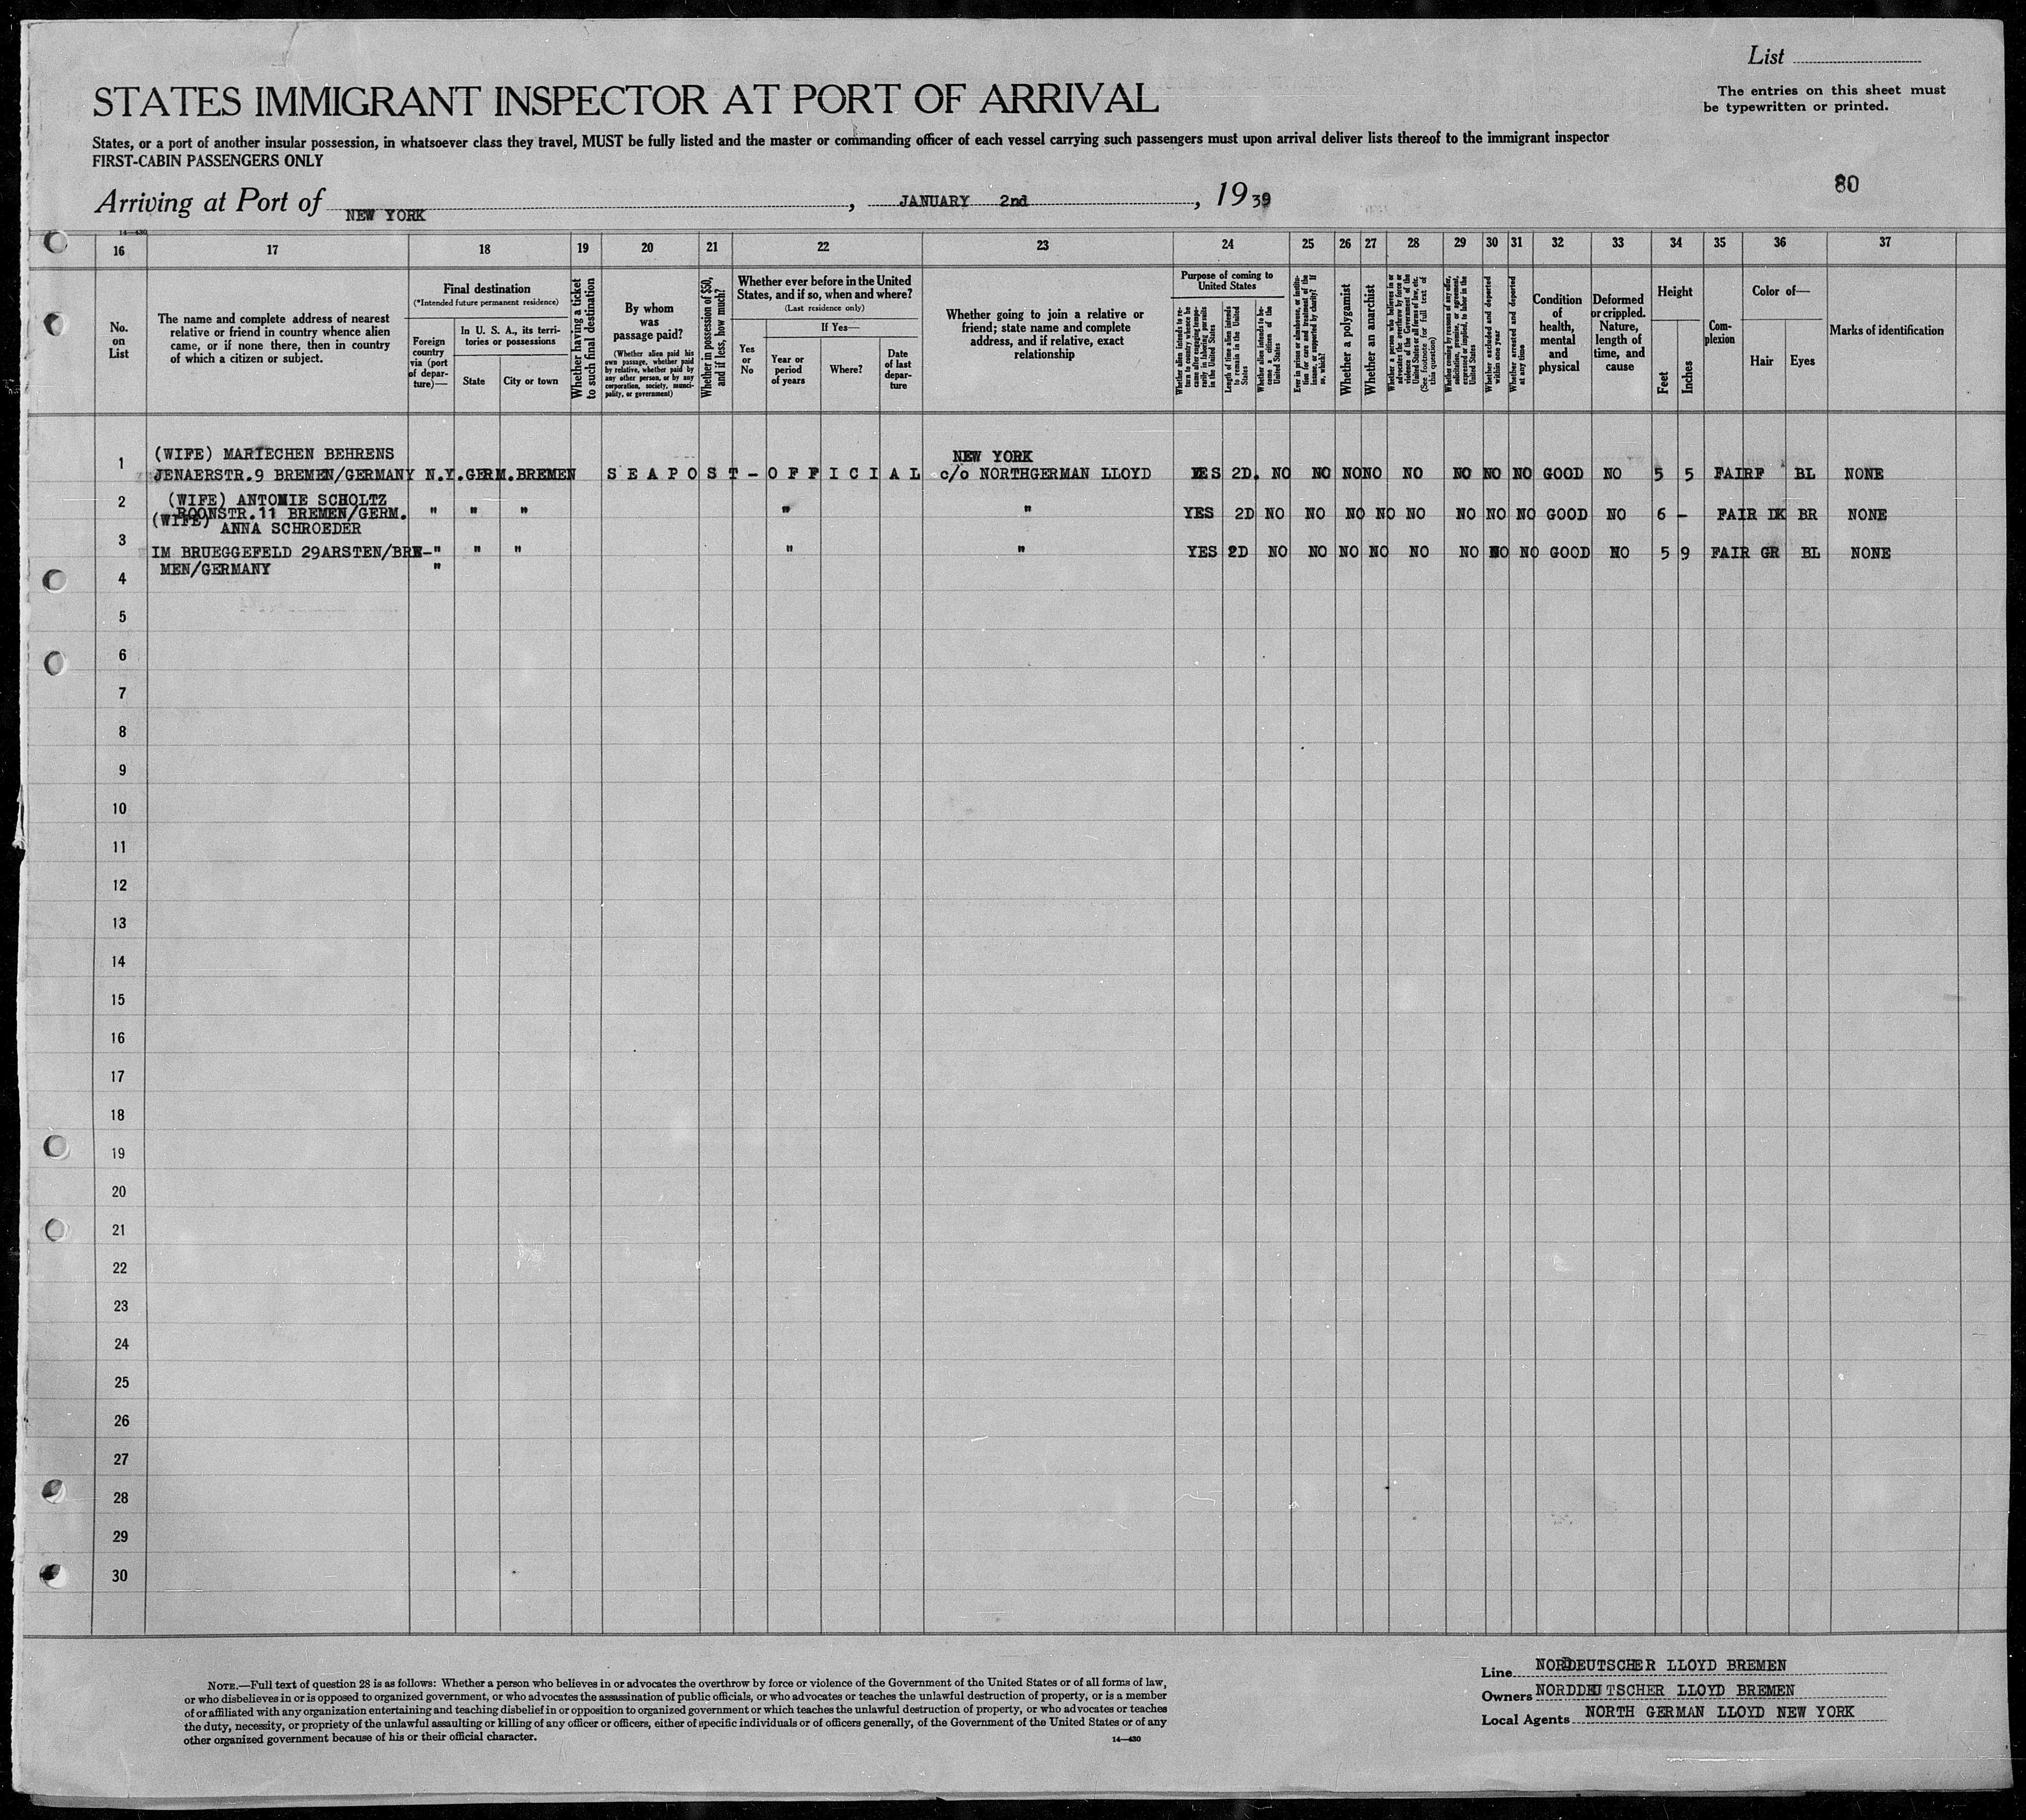 List
STATES IMMIGRANT INSPECTOR AT PORT OF ARRIVAL
The entries on this sheet must
be typewritten or printed.
States, or a port of another insular possession, in whatsoever class they travel, MUST be fully listed and the master or commanding officer of each vessel carrying such passengers must upon arrival deliver lists thereof to the immigrant inspector
FIRST-CABIN PASSENGERS ONLY
80
Arriving at Port of NEW YORK, JANUARY 2nd, 1939
14—430
16 17 18 19 20 21 22 23 24 25 26 27 28 29 30 31 32 33 34 35 36 37
No.
on
List
The name and complete address of nearest
relative or friend in country whence alien
came, or if none there, then in country
of which a citizen or subject.
Final destination
(*Intended future permanent residence)
Foreign
country
via (port
of depar-
ture)—
In U. S. A., its terri-
tories or possessions
State
City or town
Whether having a ticket
to such final destination
By whom
was
passage paid?
(Whether alien paid his
own passage, whether paid
by relative, whether paid by
any other person, or by any
corporation, society, munici-
pality, or government)
Whether in possession of $50,
and if less, how much?
Whether ever before in the United
States, and if so, when and where?
(Last residence only)
Yes
or
No
If Yes—
Year or
period
of years
Where?
Date
of last
depar-
ture
Whether going to join a relative or
friend; state name and complete
address, and if relative, exact
relationship
Purpose of coming to
United States
Whether alien intends to re-
turn to country whence he
came after engaging tempo-
rarily in laboring pursuits
in the United States
Length of time alien intends
to remain in the United
States
Whether alien intends to be-
come a citizen of the
United States
Ever in prison or almshouse, or institu-
tion for care and treatment of the
insane, or supported by charity? If
so, which?
Whether a polygamist
Whether an anarchist
Whether a person who believes in or
advocates the overthrow by force or
violence of the Government of the
United States or all forms of law, etc.
(See footnote for full text of
this question)
Whether coming by reasons of any offer,
solicitation, promise, or agreement,
expressed or implied, to labor in the
United States
Whether excluded and deported
within one year
Whether arrested and deported
at any time
Condition
of
health,
mental
and
physical
Deformed
or crippled.
Nature,
length of
time, and
cause
Height
Feet
Inches
Com-
plexion
Color of—
Hair
Eyes
Marks of identification
(WIFE) MARIECHEN BEHRENS NEW YORK
1 JENAERSTR.9 BREMEN/GERMANY N.Y.GERM.BREMEN SEAPOST-OFFICIAL c/o NORTHGERMAN LLOYD YES 2D. NO NO NO NO NO NO NO NO GOOD NO 5 5 FAIR F BL NONE
2 (WIFE) ANTONIE SCHOLTZ
ROONSTR.11 BREMEN/GERM. " " " " " YES 2D NO NO NO NO NO NO NO NO GOOD NO 6 - FAIR DK BR NONE
(WIFE) ANNA SCHROEDER
3 IM BRUEGGEFELD 29ARSTEN/BRE-" " " " " YES 2D NO NO NO NO NO NO NO NO GOOD NO 5 9 FAIR GR BL NONE
4 MEN/GERMANY "
5
6
7
8
9
10
11
12
13
14
15
16
17
18
19
20
21
22
23
24
25
26
27
28
29
30
NOTE.—Full text of question 28 is as follows: Whether a person who believes in or advocates the overthrow by force or violence of the Government of the United States or of all forms of law,
or who disbelieves in or is opposed to organized government, or who advocates the assassination of public officials, or who advocates or teaches the unlawful destruction of property, or is a member
of or affiliated with any organization entertaining and teaching disbelief in or opposition to organized government or which teaches the unlawful destruction of property, or who advocates or teaches
the duty, necessity, or propriety of the unlawful assaulting or killing of any officer or officers, either of specific individuals or of officers generally, of the Government of the United States or of any
other organized government because of his or their official character.
14—430
Line NORDDEUTSCHER LLOYD BREMEN
Owners NORDDEUTSCHER LLOYD BREMEN
Local Agents NORTH GERMAN LLOYD NEW YORK